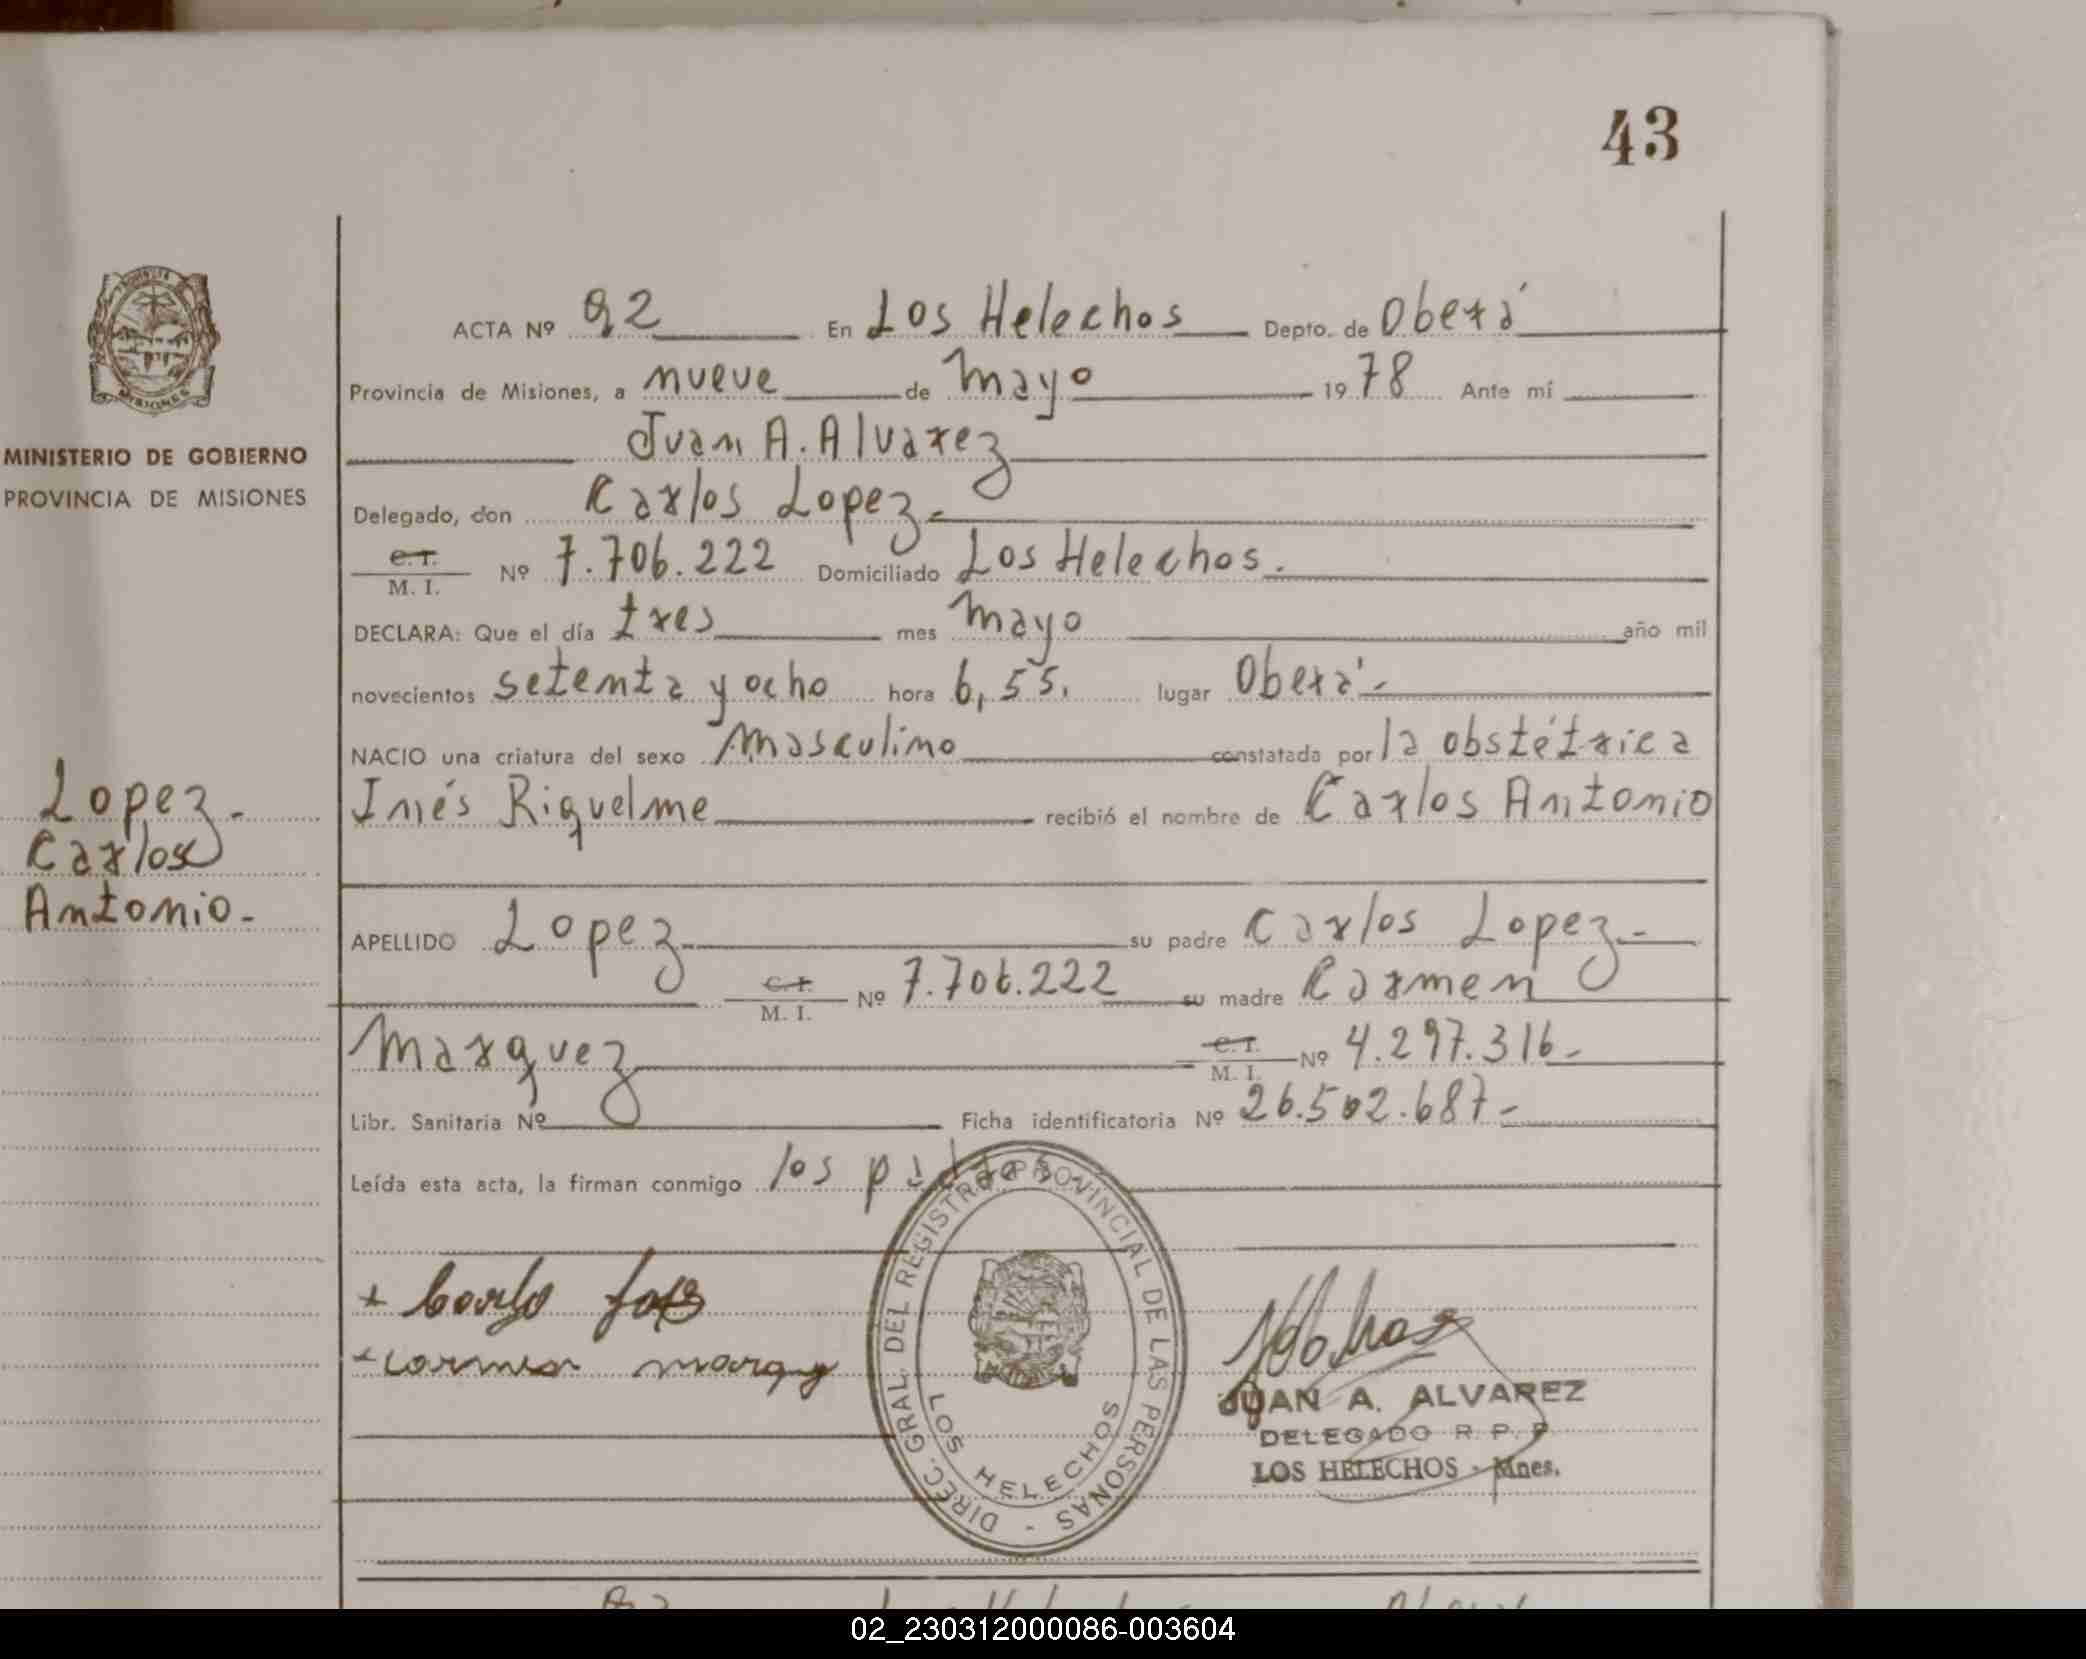 43
ACTA Nº 82 En Los Helechos Depto. de Oberá
Provincia de Misiones, a nueve de mayo 1978 Ante mí
Juan A. Alvarez
Delegado, don Carlos Lopez.
C.I.
M. I. Nº 7.706.222 Domiciliado Los Helechos.
DECLARA: Que el día tres mes mayo año mil
novecientos setenta y ocho hora 6,55. lugar Oberá.-
NACIO una criatura del sexo masculino constatada por la obstétrica
Inés Riquelme recibió el nombre de Carlos Antonio
APELLIDO Lopez su padre Carlos Lopez.-
C.I.
M. I. Nº 7.706.222 su madre Carmen
Marquez C.I.
M. I. Nº 4.297.316-
Libr. Sanitaria Nº Ficha identificatoria Nº 26.502.687-
Leída esta acta, la firman conmigo los padres.
MINISTERIO DE GOBIERNO
PROVINCIA DE MISIONES
MISIONES
Lopez.
Carlos
Antonio.-
DIREC. GRAL. DEL REGISTRO PROVINCIAL DE LAS PERSONAS -
LOS HELECHOS
+ Carlos
+ carmen marquez
JUAN A. ALVAREZ
DELEGADO R. P. P.
LOS HELECHOS - Mnes.
02_230312000086-003604